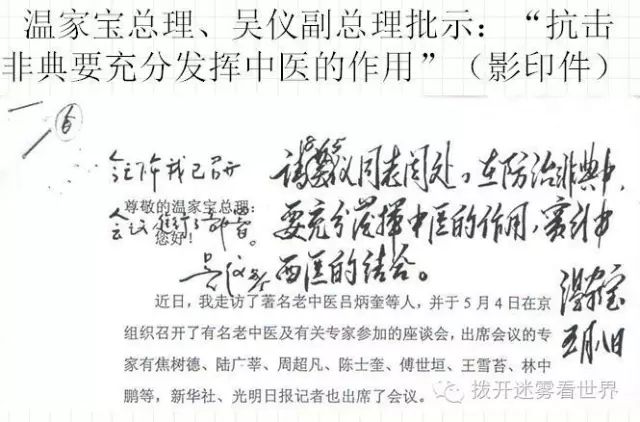 温家宝总理、吴仪副总理批示：“抗击
非典要充分发挥中医的作用”（影印件）
6
我已召开
会议进行了部署。
吴仪 8/5
请吴仪同志阅处。在防治非典中，
要充分发挥中医的作用，实行中
西医的结合。
温家宝
五月八日
尊敬的温家宝总理：
您好！
近日，我走访了著名老中医吕炳奎等人，并于5月4日在京
组织召开了有名老中医及有关专家参加的座谈会，出席会议的专
家有焦树德、陆广莘、周超凡、陈士奎、傅世垣、王雪苔、林中
鹏等，新华社、光明日报记者也出席了会议。
拨开迷雾看世界